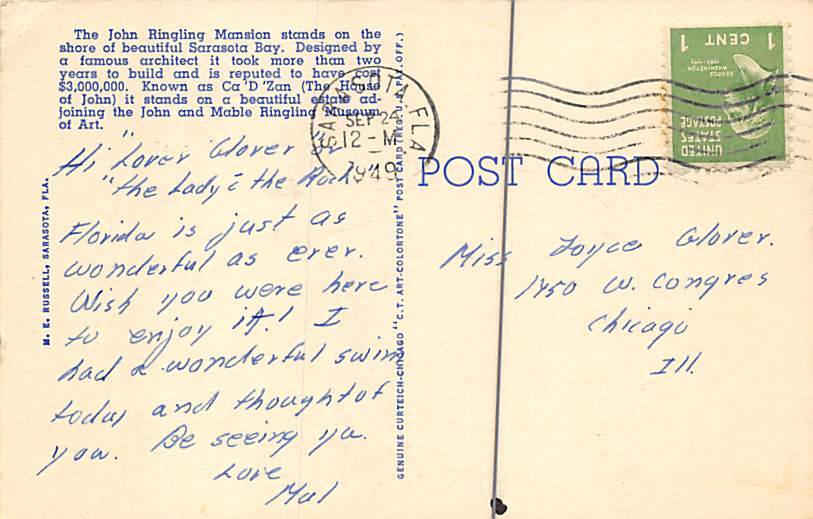 The John Ringling Mansion stands on the
shore of beautiful Sarasota Bay. Designed by
a famous architect it took more than two
years to build and is reputed to have cost
$3,000,000. Known as Ca 'D 'Zan (The House
of John) it stands on a beautiful estate ad-
joining the John and Mable Ringling Museum
of Art.
Hi "Lover Glover" or
"the Lady & the Rock"
Florida is just as
wonderful as ever.
Wish you were here
to enjoy it! I
had a wonderful swim
today and thought of
you. Be seeing ya.
Love
Mal
M. E. RUSSELL, SARASOTA, FLA.
GENUINE CURTEICH-CHICAGO "C.T. ART-COLORTONE" POST CARD (REG. U.S. PAT. OFF.)
SARASOTA, FLA.
SEP 24
12-M
1949
POST CARD
UNITED
STATES
POSTAGE
GEORGE
WASHINGTON
1789-1797
1 CENT 1
Miss Joyce Glover.
1450 W. Congres
Chicago
Ill.